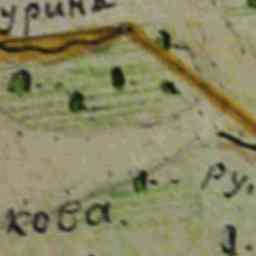 урина
ру.
кова.